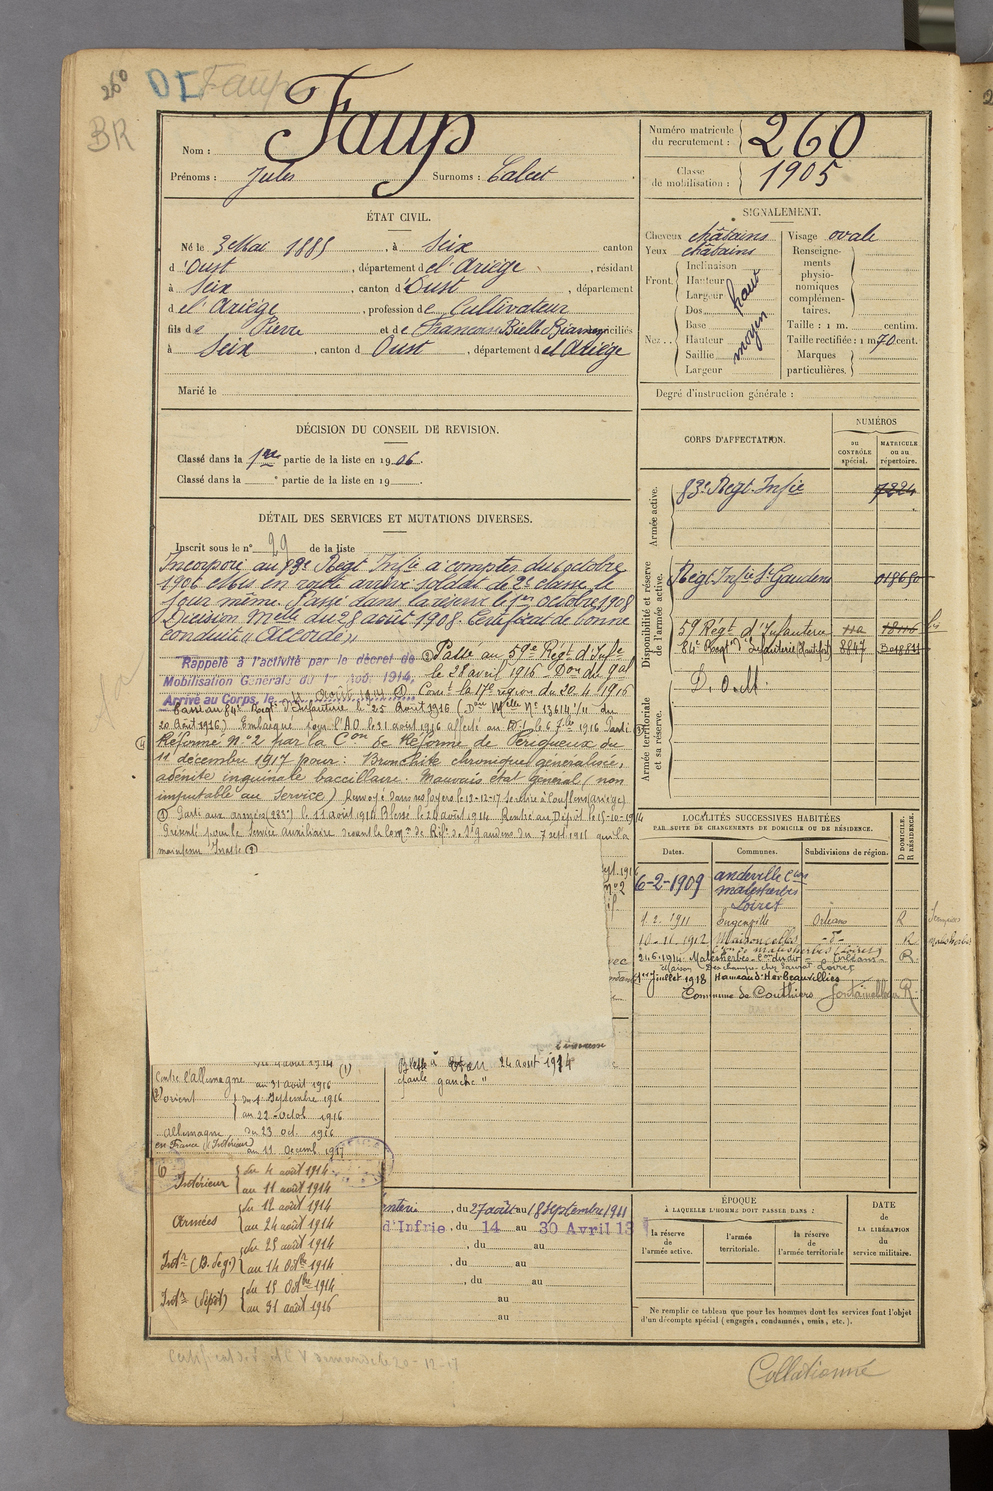 260
DI Faup
BR
Nom : Faup
Prénoms : Jules Surnoms : Calcet
Numéro matricule du recrutement : 260
Classe de mobilisation : 1905
ÉTAT CIVIL.
Né le 3 Mai 1885, à Seix canton
d'Oust, département de l'Ariège, résidant
à Seix, canton d'Oust, département
de l'Ariège, profession de Cultivateur
fils de Pierre et de Françoise Bielle domiciliés
à Seix, canton d Oust, département de l'Ariège
Marié le
SIGNALEMENT.
Cheveux châtains Visage ovale
Yeux châtains
Front. Inclinaison
Hauteur haut
Largeur
Nez.. Dos
Base moyen
Hauteur
Saillie
Largeur
Renseignements physionomiques complémentaires.
Taille : 1 m. centim.
Taille rectifiée : 1 m 70 cent.
Marques particulières.
Degré d'instruction générale :
DÉCISION DU CONSEIL DE REVISION.
Classé dans la 1re partie de la liste en 1906.
Classé dans la e partie de la liste en 19
DÉTAIL DES SERVICES ET MUTATIONS DIVERSES.
Inscrit sous le n° 29 de la liste
Incorporé au 83e Régt Infie à compter du 6 octobre
1906 et mis en route arrivé soldat de 2e classe le
jour même. Passé dans la réserve le 1er octobre 1908
Décision Melle du 28 août 1908. Certificat de bonne
conduite "Accordé"
Rappelé à l'activité par le décret de
Mobilisation Générale du 1er Août 1914,
Arrivé au Corps, le
② Passé au 59e Régt d'Infie
le 28 avril 1916 Don du Gal
Comt la 17e région du 20.4.1916
Passé au 84e Régt d'Infanterie le 25 Août 1916 (Don Melle N° 13614 1/11 du
20 Août 1916) Embarqué pour l'A.O. le 31 août 1916 affecté au D.I. le 6 7bre 1916
④ Réformé N°2 par la Con de Réforme de Périgueux du
11 décembre 1917 pour : Bronchite chronique généralisée,
adénite inguinale baccillaire. Mauvais état général (non
imputable au Service) Renvoyé dans ses foyers le 12-12-17 Se retire à Couflens (Ariège)
① Parti aux armées (283e) le 11 août 1914 Blessé le 24 août 1914 Rentré au Dépôt le 15-10-1914
Présenté pour le Service Auxiliaire devant la Comon de Rife de St Gaudens du 7 sept 1915 qui l'a
maintenu Inapte ②
CORPS D'AFFECTATION.
NUMÉROS
DU CONTRÔLE spécial.
MATRICULE ou au répertoire.
Armée active.
83e Régt Infie 7224
Disponibilité et réserve de l'armée active.
Régt Infie St Gaudens 018680
59 Régt d'Infanterie
84e Régt d'Infanterie 8847
D. O. dt.
Armée territoriale et sa réserve.
LOCALITÉS SUCCESSIVES HABITÉES
PAR SUITE DE CHANGEMENTS DE DOMICILE OU DE RÉSIDENCE.
Dates. Communes. Subdivisions de région. D DOMICILE. R RÉSIDENCE.
6-2-1909 Malesherbes Loiret
1.2.1911 Orléans R
10-11.1912 Maisoncelles -d°- R
24.6.1914 Malesherbes Orléans R
1er Juillet 1918 Hameau d'Herbeauvilliers
Commune de Fontainebleau R
Blessé à 24 août 1914
épaule gauche "
du 4 août 1914 (1)
Contre l'allemagne au 31 août 1916
Orient du 1 Septembre 1916
au 22 Octob 1916
Allemagne du 23 oct. 1916
en France (Intérieur) au 11 Decemb 1917
Intérieur du 4 août 1914
au 11 août 1914
Armées du 12 août 1914
au 24 août 1914
Intr (B. de g.) du 25 août 1914
au 14 Octbre 1914
Intr (dépôt) du 15 Octbre 1914
au 31 août 1916
nterie, du 27 août au 18 Septembre 1911
d'Infrie, du 14 au 30 Avril 13
, du au
, du au
, du au
au
au
ÉPOQUE
À LAQUELLE L'HOMME DOIT PASSER DANS :
la réserve de l'armée active.
l'armée territoriale.
la réserve de l'armée territoriale
DATE de LA LIBÉRATION du service militaire.
Ne remplir ce tableau que pour les hommes dont les services font l'objet
d'un décompte spécial (engagés, condamnés, omis, etc.).
Collationné